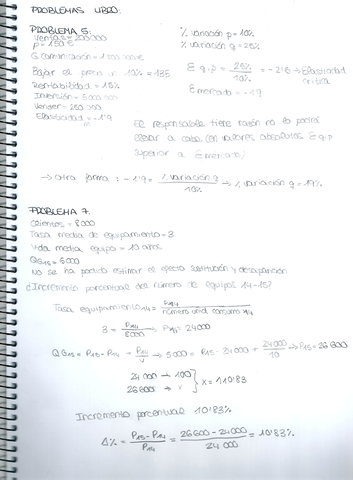 PROBLEMAS LIBRO:
PROBLEMA 5:
Ventas = 200000
P = 150 €
G comunicación = 1 500 000 €
Bajar el precio un 10% = 135
Rentabilidad = 15%
Inversión = 5000 000
Vender = 250 000
Elasticidad = -1'9
% variación p = 10%
% variación q = 25%
E q,p = 25% / 10% = -2'5 → Elasticidad crítica
E mercado = -1'9
El responsable tiene razón no lo podrá
llevar a cabo (en valores absolutos E q,p
superior a E mercado)
→ Otra forma: -1'9 = % variación q / 10% → % variación q = 19%
PROBLEMA 7:
Clientes = 8000
Tasa media de equipamiento = 3
Vida media equipo = 10 años
QG15 = 5000
No se ha podido estimar el efecto sustitución y desaparición
¿Incremento porcentual del número de equipos 14-15?
Tasa equipamiento14 = P14 / número unid. consumo 14
3 = P14 / 8000 → P14 = 24000
QG15 = P15 - P14 + P14 / V → 5000 = P15 - 24000 + 24000 / 10 → P15 = 26600
24 000 → 100
26600 → x } x = 110'83
Incremento porcentual 10'83%
Δ% = P15 - P14 / P14 = 26600 - 24000 / 24 000 = 10'83%